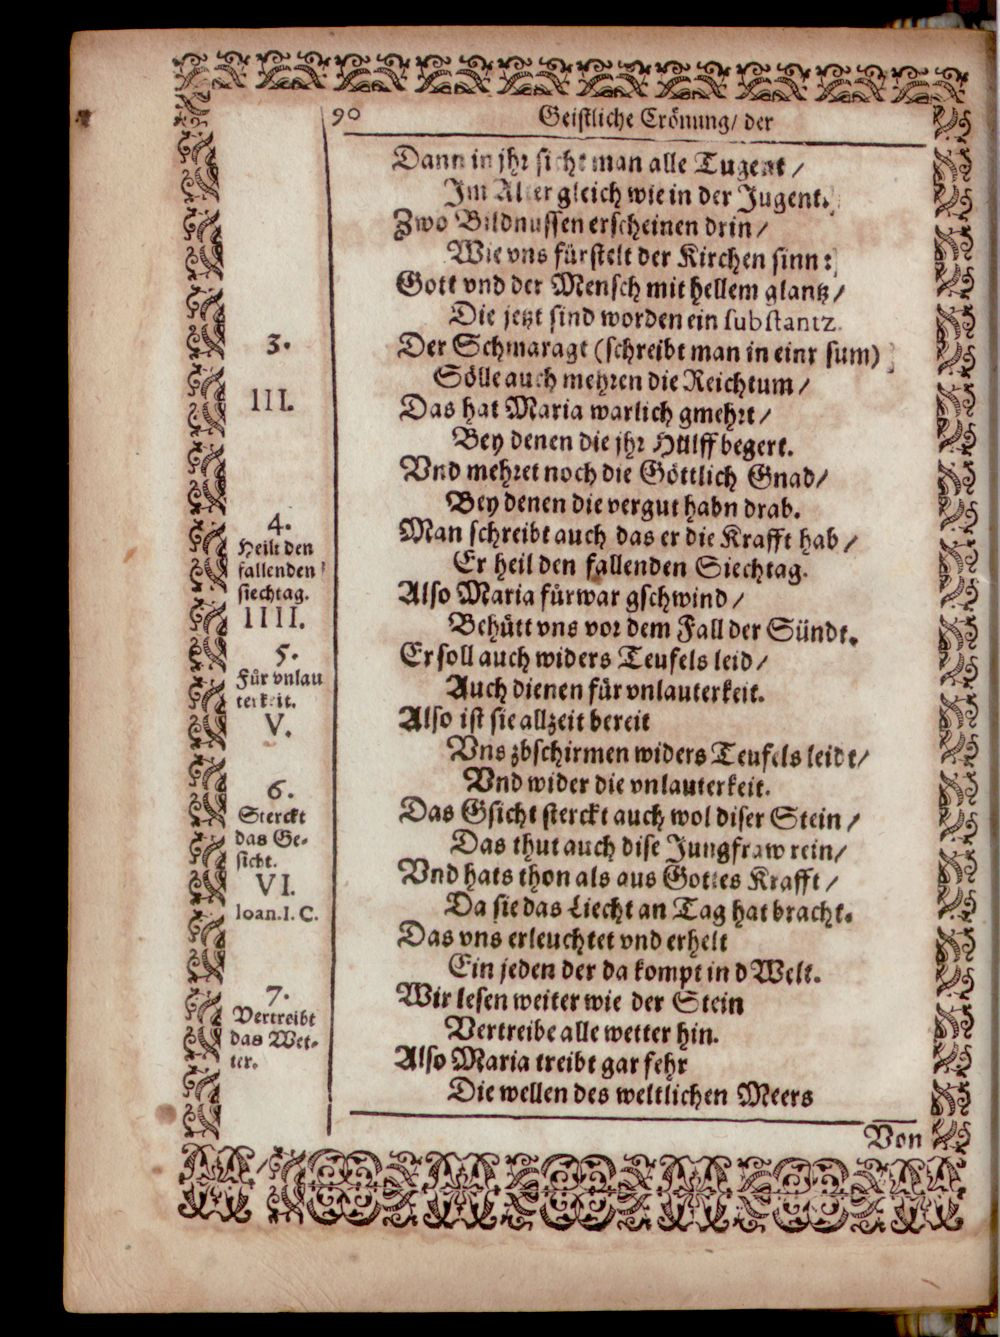 90 Geistliche Crönung/ der
Dann in jhr sicht man alle Tugent /
Im Alter gleich wie in der Jugent.
Zwo Bildnussen erscheinen drin /
Wie vns fürstelt der Kirchen sinn:
Gott vnd der Mensch mit hellem glantz /
Die jetzt sind worden ein substantz.
3.
Der Schmaragt (schreibt man in einr sum)
Sölle auch mehren die Reichtum /
III.
Das hat Maria warlich gmehrt /
Bey denen die jhr Hülff begert.
Vnd mehret noch die Göttlich Gnad /
Bey denen die vergut habn drab.
4.
Heilt den
fallenden
siechtag.
Man schreibt auch das er die Krafft hab /
Er heil den fallenden Siechtag.
IIII.
Also Maria fürwar gschwind /
Behütt vns vor dem Fall der Sündt.
5.
Für vnlau
terkeit.
Er soll auch widers Teufels leid /
Auch dienen für vnlauterkeit.
V.
Also ist sie allzeit bereit
Vns zbschirmen widers Teufels leidt /
Vnd wider die vnlauterkeit.
6.
Sterckt
das Ge-
sicht.
Das Gsicht sterckt auch wol diser Stein /
Das thut auch dise Jungfraw rein /
VI.
Ioan. I. C.
Vnd hats thon als aus Gottes Krafft /
Da sie das Liecht an Tag hat bracht.
Das vns erleuchtet vnd erhelt
Ein jeden der da kompt in d Welt.
7.
Vertreibt
das Wet-
ter.
Wir lesen weiter wie der Stein
Vertreibe alle wetter hin.
Also Maria treibt gar sehr
Die wellen des weltlichen Meers
Von